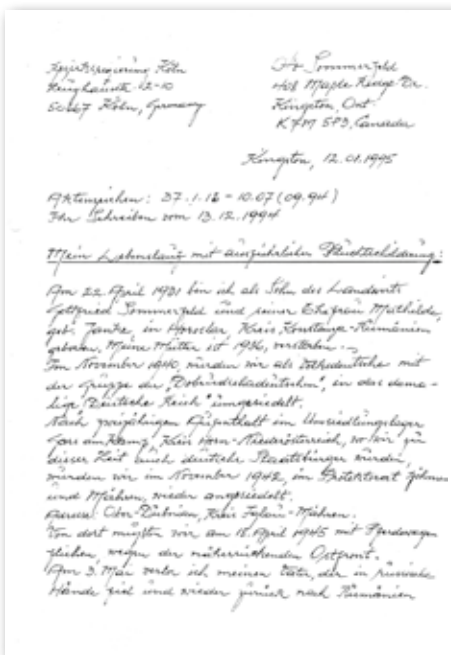 Bezirksregierung Köln
Zeughausstr. 12-10
50667 Köln, Germany
Otto Sommerfeld
408 Maple Ridge Dr.
Kingston, Ont.
K7M 5P3, Canada
Kingston, 12.01.1995
Aktenzeichen: 37.1.12 - 10.07 (09.94)
Ihr Schreiben vom 13.12.1994
Mein Lebenslauf mit ausführlicher Fluchtschilderung:
Am 22. April 1931 bin ich als Sohn des Landwirts
Gottfried Sommerfeld und seiner Ehefrau Mathilde,
geb. Janke, in Kreis Konstanza-Rumänien
geboren. Meine Mutter ist 1936 verstorben.
Im November 1940, wurden wir als Volksdeutsche mit
der Gruppe der "Dobrudschadeutschen", in das dama-
lige "Deutsche Reich" umgesiedelt.
Nach zweijährigem Aufenthalt im Umsiedlungslager
Gars am Kamp, Kreis Horn-Niederösterreich, wo wir zu
dieser Zeit auch deutsche Staatsbürger wurden,
wurden wir im November 1942, im Protektorat Böhmen
und Mähren, wieder angesiedelt.
Ober-Dubnian, Kreis Iglau-Mähren.
Von dort mußten wir am 18. April 1945 mit Pferdewagen
fliehen wegen der näherrückenden Ostfront.
Am 3. Mai verlor ich meinen Vater, der in russische
Hände fiel und wieder zurück nach Rumänien